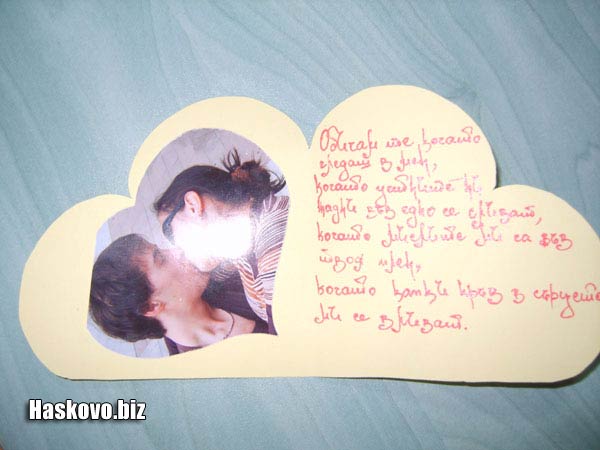 Обичам те когато
гледаш в мен,
когато устните ни
жадни във едно се сливат,
когато мислите ми са във
твоя плен,
когато капки кръв в сърцето
ми се вливат.
Haskovo.biz